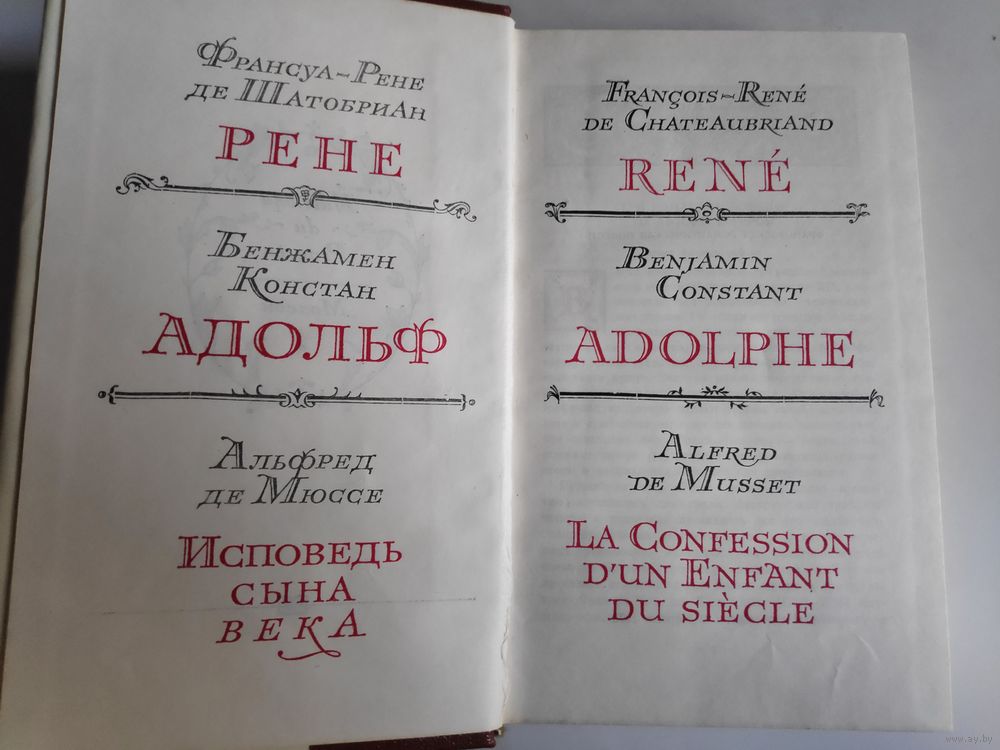 Франсуа-Рене
де Шатобриан
РЕНЕ
Бенжамен
Констан
АДОЛЬФ
Альфред
де Мюссе
Исповедь
сына
века
François-René
de Chateaubriand
RENÉ
Benjamin
Constant
ADOLPHE
Alfred
de Musset
La Confession
d'un Enfant
du siècle
www.ay.by